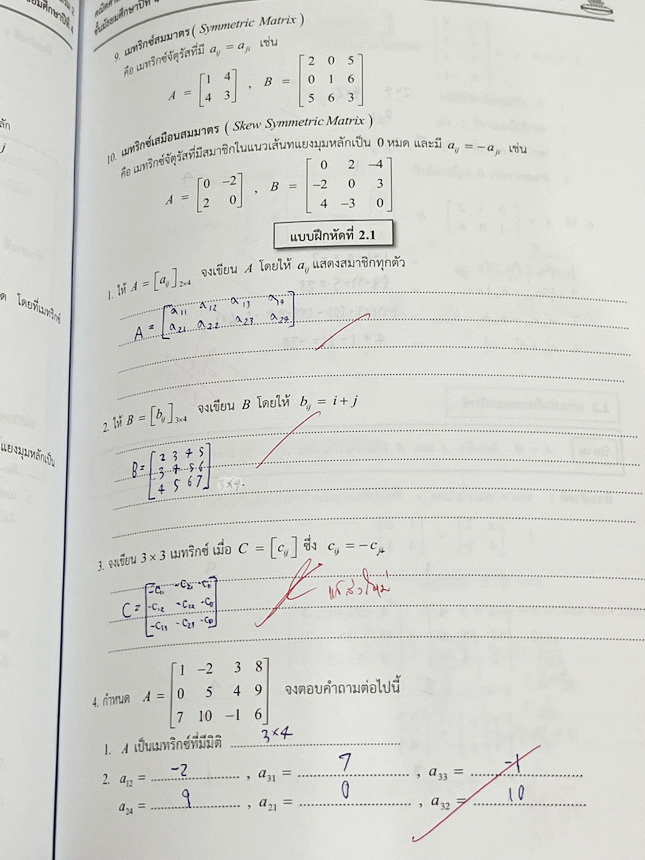 ชั้นมัธยมศึกษาปีที่ 4
9. เมทริกซ์สมมาตร ( Symmetric Matrix )
คือ เมทริกซ์จัตุรัสที่มี a_ij = a_ji เช่น
A = [1 4] , B = [2 0 5]
[4 3] [0 1 6]
[5 6 3]
10. เมทริกซ์เสมือนสมมาตร ( Skew Symmetric Matrix )
คือ เมทริกซ์จัตุรัสที่มีสมาชิกในแนวเส้นทแยงมุมหลักเป็น 0 หมด และมี a_ij = -a_ji เช่น
A = [0 -2] , B = [0 2 -4]
[2 0] [-2 0 3]
[4 -3 0]
แบบฝึกหัดที่ 2.1
1. ให้ A = [a_ij]_2×4 จงเขียน A โดยให้ a_ij แสดงสมาชิกทุกตัว
A = [a11 a12 a13 a14]
[a21 a22 a23 a24]
2. ให้ B = [b_ij]_3×4 จงเขียน B โดยให้ b_ij = i + j
B = [2 3 4 5]
[3 4 5 6]
[4 5 6 7] 3×4
3. จงเขียน 3 × 3 เมทริกซ์ เมื่อ C = [c_ij] ซึ่ง c_ij = -c_ji
C =
4. กำหนด A = [1 -2 3 8] จงตอบคำถามต่อไปนี้
[0 5 4 9]
[7 10 -1 6]
1. A เป็นเมทริกซ์ที่มีมิติ 3×4
2. a_12 = -2 , a_31 = 7 , a_33 = -1
a_24 = 9 , a_21 = 0 , a_32 = 10